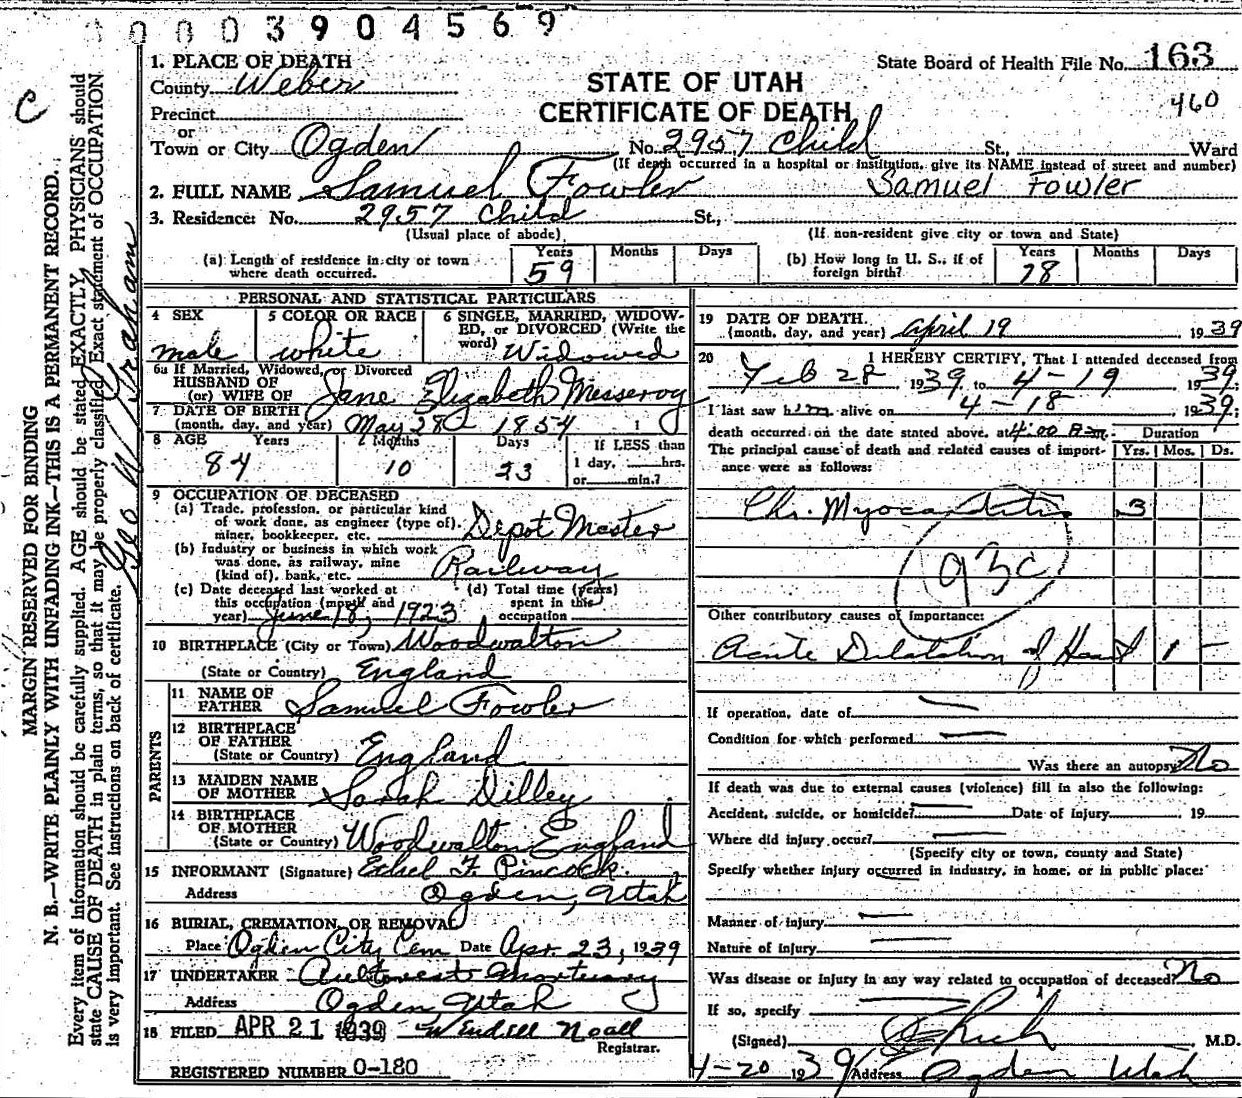 0003904569
1. PLACE OF DEATH
County Weber
State Board of Health File No. 163
STATE OF UTAH
460
CERTIFICATE OF DEATH
Precinct
or
Town or City Ogden No. 2957 Child St., Ward
(If death occurred in a hospital or institution, give its NAME instead of street and number)
2. FULL NAME Samuel Fowler Samuel Fowler
3. Residence: No. 2957 Child St.,
(Usual place of abode) (If non-resident give city or town and State)
(a) Length of residence in city or town where death occurred. Years 59 Months Days
(b) How long in U. S., if of foreign birth? Years 78 Months Days
PERSONAL AND STATISTICAL PARTICULARS
4 SEX male
5 COLOR OR RACE white
6 SINGLE, MARRIED, WIDOWED, or DIVORCED (Write the word) Widowed
6a If Married, Widowed, or Divorced
HUSBAND OF
(or) WIFE OF Jane Elizabeth Messervy
7 DATE OF BIRTH
(month, day, and year) May 28 1854
8 AGE Years 84 Months 10 Days 23 If LESS than 1 day, hrs. or min.?
9 OCCUPATION OF DECEASED
(a) Trade, profession, or particular kind
of work done, as engineer (type of),
miner, bookkeeper, etc. Depot Master
(b) Industry or business in which work
was done, as railway, mine
(kind of), bank, etc. Railway
(c) Date deceased last worked at
this occupation (month and
year) June 18, 1923
(d) Total time (years)
spent in this
occupation
10 BIRTHPLACE (City or Town) Woodwalton
(State or Country) England
PARENTS
11 NAME OF
FATHER Samuel Fowler
12 BIRTHPLACE
OF FATHER
(State or Country) England
13 MAIDEN NAME
OF MOTHER Sarah Dilley
14 BIRTHPLACE
OF MOTHER
(State or Country) Woodwalton England
15 INFORMANT (Signature) Ethel F. Pincock
Address Ogden, Utah
16 BURIAL, CREMATION, OR REMOVAL
Place Ogden City Cem Date Apr. 23, 1939
17 UNDERTAKER Aultorest Mortuary
Address Ogden Utah
18 FILED APR 21 1939 Wendell Noall
Registrar.
REGISTERED NUMBER 0-180
19 DATE OF DEATH
(month, day, and year) April 19 1939
20 I HEREBY CERTIFY, That I attended deceased from
Feb 28 1939 to 4-19 1939
I last saw him alive on 4-18, 1939;
death occurred on the date stated above, at 4:00 m.
The principal cause of death and related causes of importance were as follows:
Duration
Yrs. Mos. Ds.
Chr. Myocarditis 3
93c
Other contributory causes of importance:
Acute Dilatation of Heart 1 -
If operation, date of
Condition for which performed
Was there an autopsy? No
If death was due to external causes (violence) fill in also the following:
Accident, suicide, or homicide? Date of injury 19
Where did injury occur?
(Specify city or town, county and State)
Specify whether injury occurred in industry, in home, or in public place:
Manner of injury
Nature of injury
Was disease or injury in any way related to occupation of deceased? No
If so, specify
(Signed) Rich M.D.
4-20 1939 Address Ogden Utah
C
MARGIN RESERVED FOR BINDING
N. B.—WRITE PLAINLY WITH UNFADING INK—THIS IS A PERMANENT RECORD.
Every item of information should be carefully supplied. AGE should be stated EXACTLY. PHYSICIANS should
state CAUSE OF DEATH in plain terms, so that it may be properly classified. Exact statement of OCCUPATION
is very important. See instructions on back of certificate.
Geo W Graham